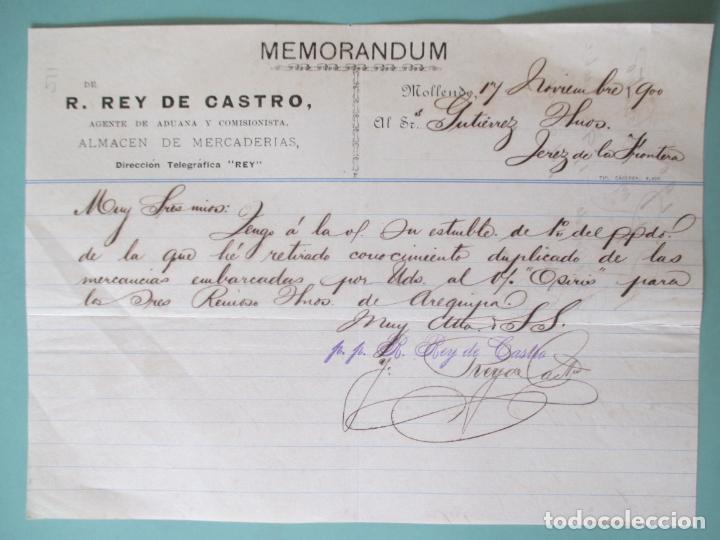 MEMORANDUM
DE
R. REY DE CASTRO,
AGENTE DE ADUANA Y COMISIONISTA.
ALMACEN DE MERCADERIAS,
Dirección Telegráfica "REY"
Mollendo, 17 Noviembre 1900
Al Sr.s Gutiérrez Hnos.
Jerez de la Frontera
Muy Sres mios: Tengo á la v/. Su estmble. de 1º del ppdo.
de la que hé retirado conocimiento duplicado de las
mercancias embarcadas por Uds. al v/. "Osiris" para
los Sres Reinoso Hnos. de Arequipa.
Muy Atto. S S.
p. p. R. Rey de Castro
Rey de Castro
todocoleccion
todocoleccion.net